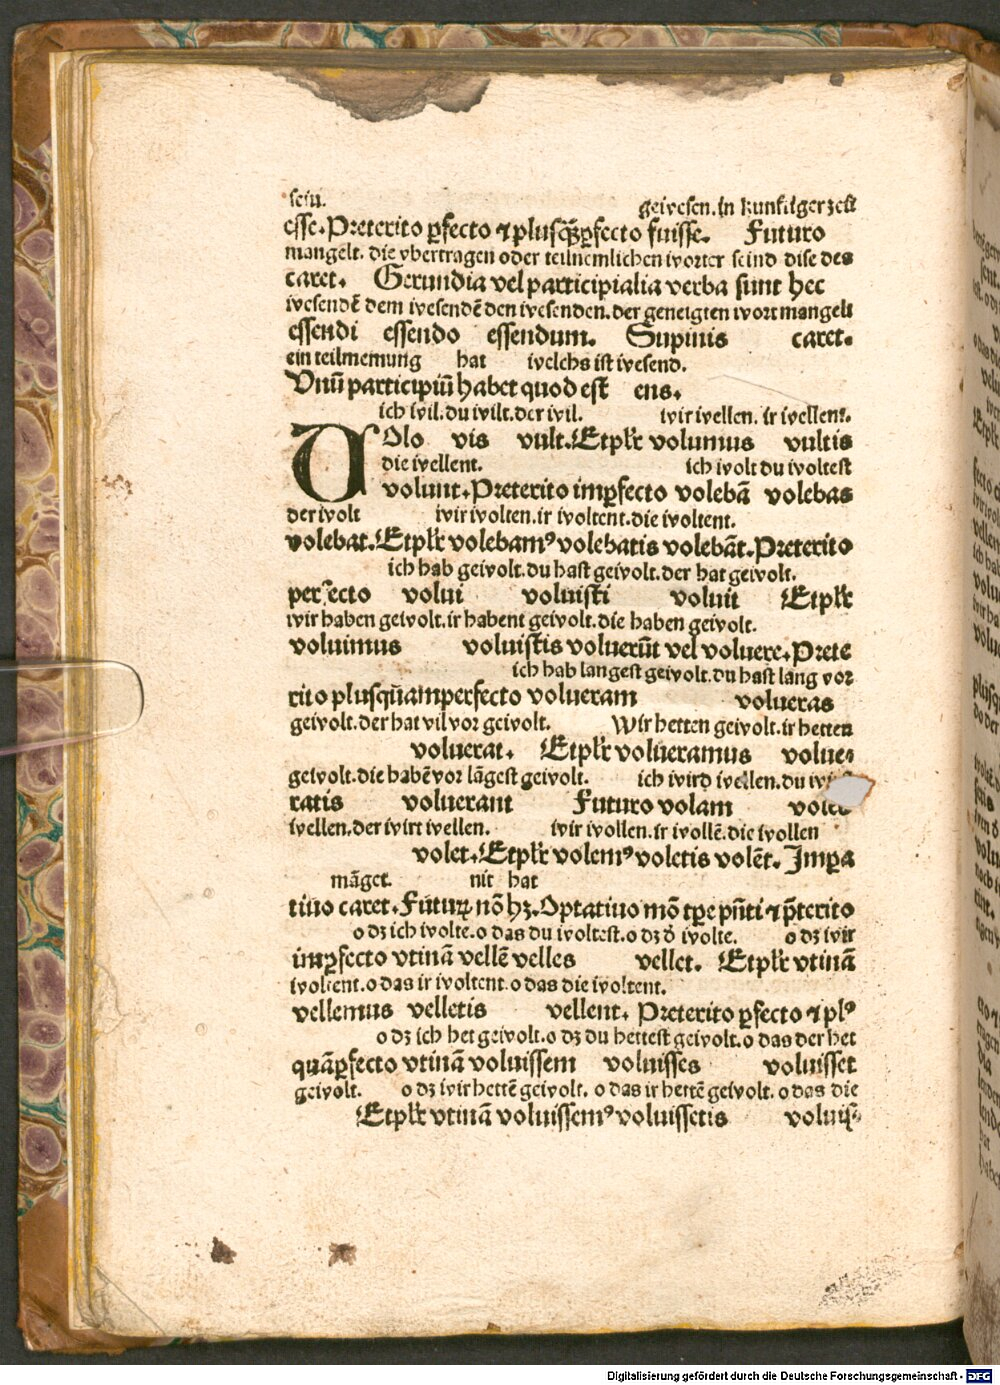 sein. geivesen. in kunftiger zeit
esse. Preterito ꝑfecto ⁊ plusq̃ꝑfecto fuisse. Futuro
mangelt. die vbertragen oder teilnemlichen ivorter seind dise des
caret. Gerundia vel participialia verba sunt hec
ivesendē dem ivesendē den ivesenden. der geneigten ivort mangelt
essendi essendo essendum. Supinis caret.
ein teilnemung hat ivelchs ist ivesend.
Vnū participiū habet quod est ens.
ich ivil. du ivilt. der ivil. ivir ivellen. ir ivellent.
VOlo vis vult. Et plr̄ volumus vultis
die ivellent. ich ivolt du ivoltest
volunt. Preterito imꝑfecto volebā volebas
der ivolt ivir ivolten. ir ivoltent. die ivoltent.
volebat. Et plr̄ volebamꝰ volebatis volebāt. Preterito
ich hab geivolt. du hast geivolt. der hat geivolt.
perfecto volui voluisti voluit Et plr̄
ivir haben geivolt. ir habent geivolt. die haben geivolt.
voluimus voluistis voluerūt vel voluere. Prete
ich hab langest geivolt. du hast lang vor
rito plusquāmperfecto volueram volueras
geivolt. der hat vil vor geivolt. Wir hetten geivolt. ir hetten
voluerat. Et plr̄ volueramus volue⸗
geivolt. die habē vor lāgest geivolt. ich ivird ivellen. du
ratis voluerant Futuro volam
ivellen. der ivirt ivellen. ivir ivollen. ir ivollē. die ivollen
volet. Et plr̄ volemꝰ voletis volēt. Imꝑa
māget. nit hat
tiuo caret. Futuꝝ nō hꝫ. Optatiuo mō tꝑe pn̄ti ⁊ p̄terito
o dꝫ ich ivolte. o das du ivoltest. o dꝫ d̄ ivolte. o dꝫ ivir
imꝑfecto vtinā vellē velles vellet. Et plr̄ vtinā
ivoltent. o das ir ivoltent. o das die ivoltent.
vellemus velletis vellent. Preterito ꝑfecto ⁊ plꝰ
o dꝫ ich het geivolt. o dꝫ du hettest geivolt. o das der het
quāꝑfecto vtinā voluissem voluisses voluisset
geivolt. o dꝫ ivir hettē geivolt. o das ir hettē geivolt. o das die
Et plr̄ vtinā voluissemꝰ voluissetis voluis⸗
Digitalisierung gefördert durch die Deutsche Forschungsgemeinschaft - DFG